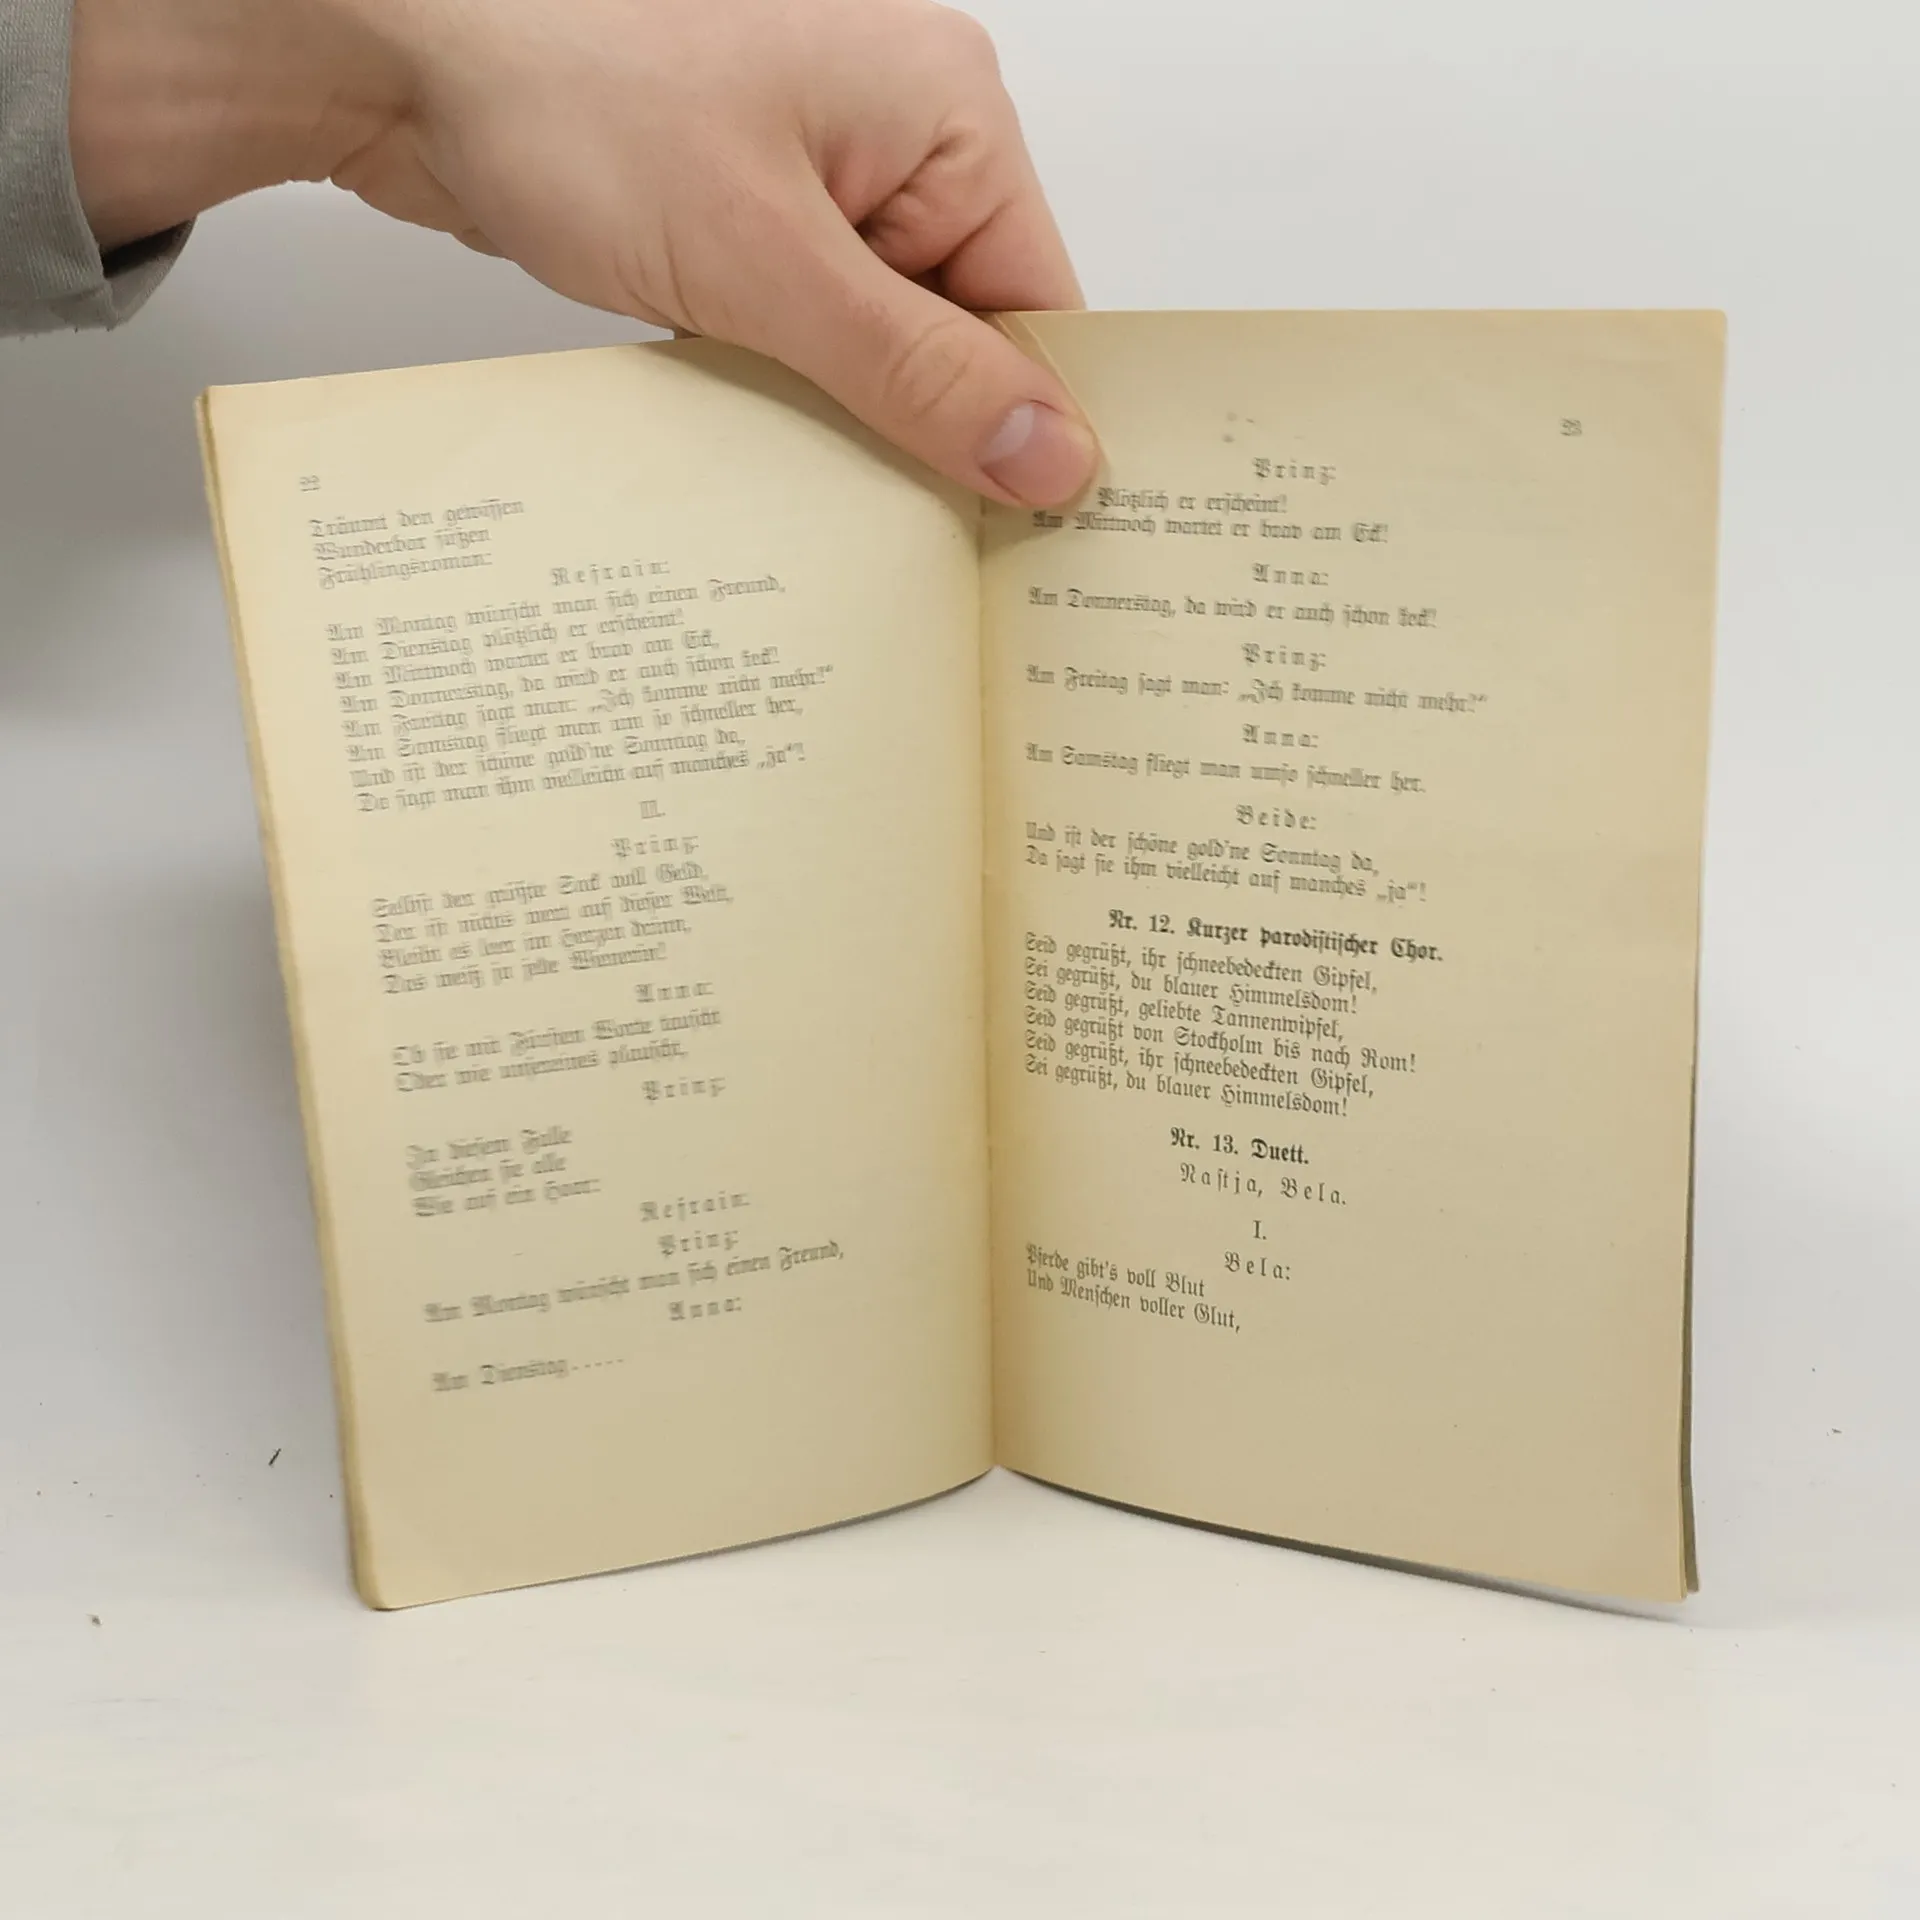 22
Träumt den gewissen
Wunderbar süßen
Frühlingsroman:
Refrain:
Am Montag wünscht man sich einen Freund,
Am Dienstag plötzlich er erscheint!
Am Mittwoch wartet er brav am Eck,
Am Donnerstag, da wird er auch schon keck!
Am Freitag sagt man: „Ich komme nicht mehr!“
Am Samstag fliegt man um so schneller her,
Und ist der schöne gold'ne Sonntag da,
Da sagt man ihm vielleicht auf manches „ja“!
II.
Prinz:
Selbst der größte Sack voll Geld,
Der ist nichts wert auf dieser Welt,
Bleibt es leer im Herzen drinn,
Das weiß ja jede Wienerin!
Anna:
Ob sie mit Fürsten Worte tauscht
Oder wie unsereines plauscht,
Prinz:
In diesem Falle
Gleichen sie alle
Wie auf ein Haar:
Refrain:
Prinz:
Am Montag wünscht man sich einen Freund,
Anna:
Am Dienstag-----
23
Prinz:
Plötzlich er erscheint!
Am Mittwoch wartet er brav am Eck!
Anna:
Am Donnerstag, da wird er auch schon keck!
Prinz:
Am Freitag sagt man: „Ich komme nicht mehr!“
Anna:
Am Samstag fliegt man umso schneller her.
Beide:
Und ist der schöne gold'ne Sonntag da,
Da sagt sie ihm vielleicht auf manches „ja“!
Nr. 12. Kurzer parodistischer Chor.
Seid gegrüßt, ihr schneebedeckten Gipfel,
Sei gegrüßt, du blauer Himmelsdom!
Seid gegrüßt, geliebte Tannenwipfel,
Seid gegrüßt von Stockholm bis nach Rom!
Seid gegrüßt, ihr schneebedeckten Gipfel,
Sei gegrüßt, du blauer Himmelsdom!
Nr. 13. Duett.
Nastja, Bela.
I.
Bela:
Pferde gibt's voll Blut
Und Menschen voller Glut,